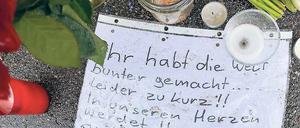 Ihr habt die Welt
bunter gemacht....
leider zu kurz!!
In unseren Herzen
werdet !!